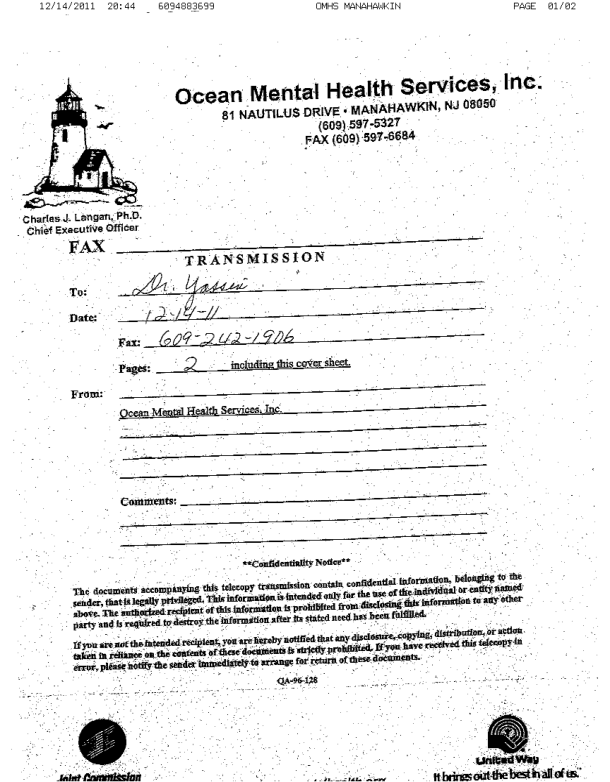 12/14/2011 20:44 6094883699 OMHS MANAHAWKIN PAGE 01/02
Ocean Mental Health Services, Inc.
81 NAUTILUS DRIVE • MANAHAWKIN, NJ 08050
(609) 597-5327
FAX (609) 597-6684
Charles J. Langan, Ph.D.
Chief Executive Officer
FAX
TRANSMISSION
To: Dr. Yassin
Date: 12-14-11
Fax: 609-242-1906
Pages: 2 including this cover sheet.
From:
Ocean Mental Health Services, Inc.
Comments:
**Confidentiality Notice**
The documents accompanying this telecopy transmission contain confidential information, belonging to the
sender, that is legally privileged. This information is intended only for the use of the individual or entity named
above. The authorized recipient of this information is prohibited from disclosing this information to any other
party and is required to destroy the information after its stated need has been fulfilled.
If you are not the intended recipient, you are hereby notified that any disclosure, copying, distribution, or action
taken in reliance on the contents of these documents is strictly prohibited. If you have received this telecopy in
error, please notify the sender immediately to arrange for return of these documents.
QA-96-128
Joint Commission
United Way
It brings out the best in all of us.